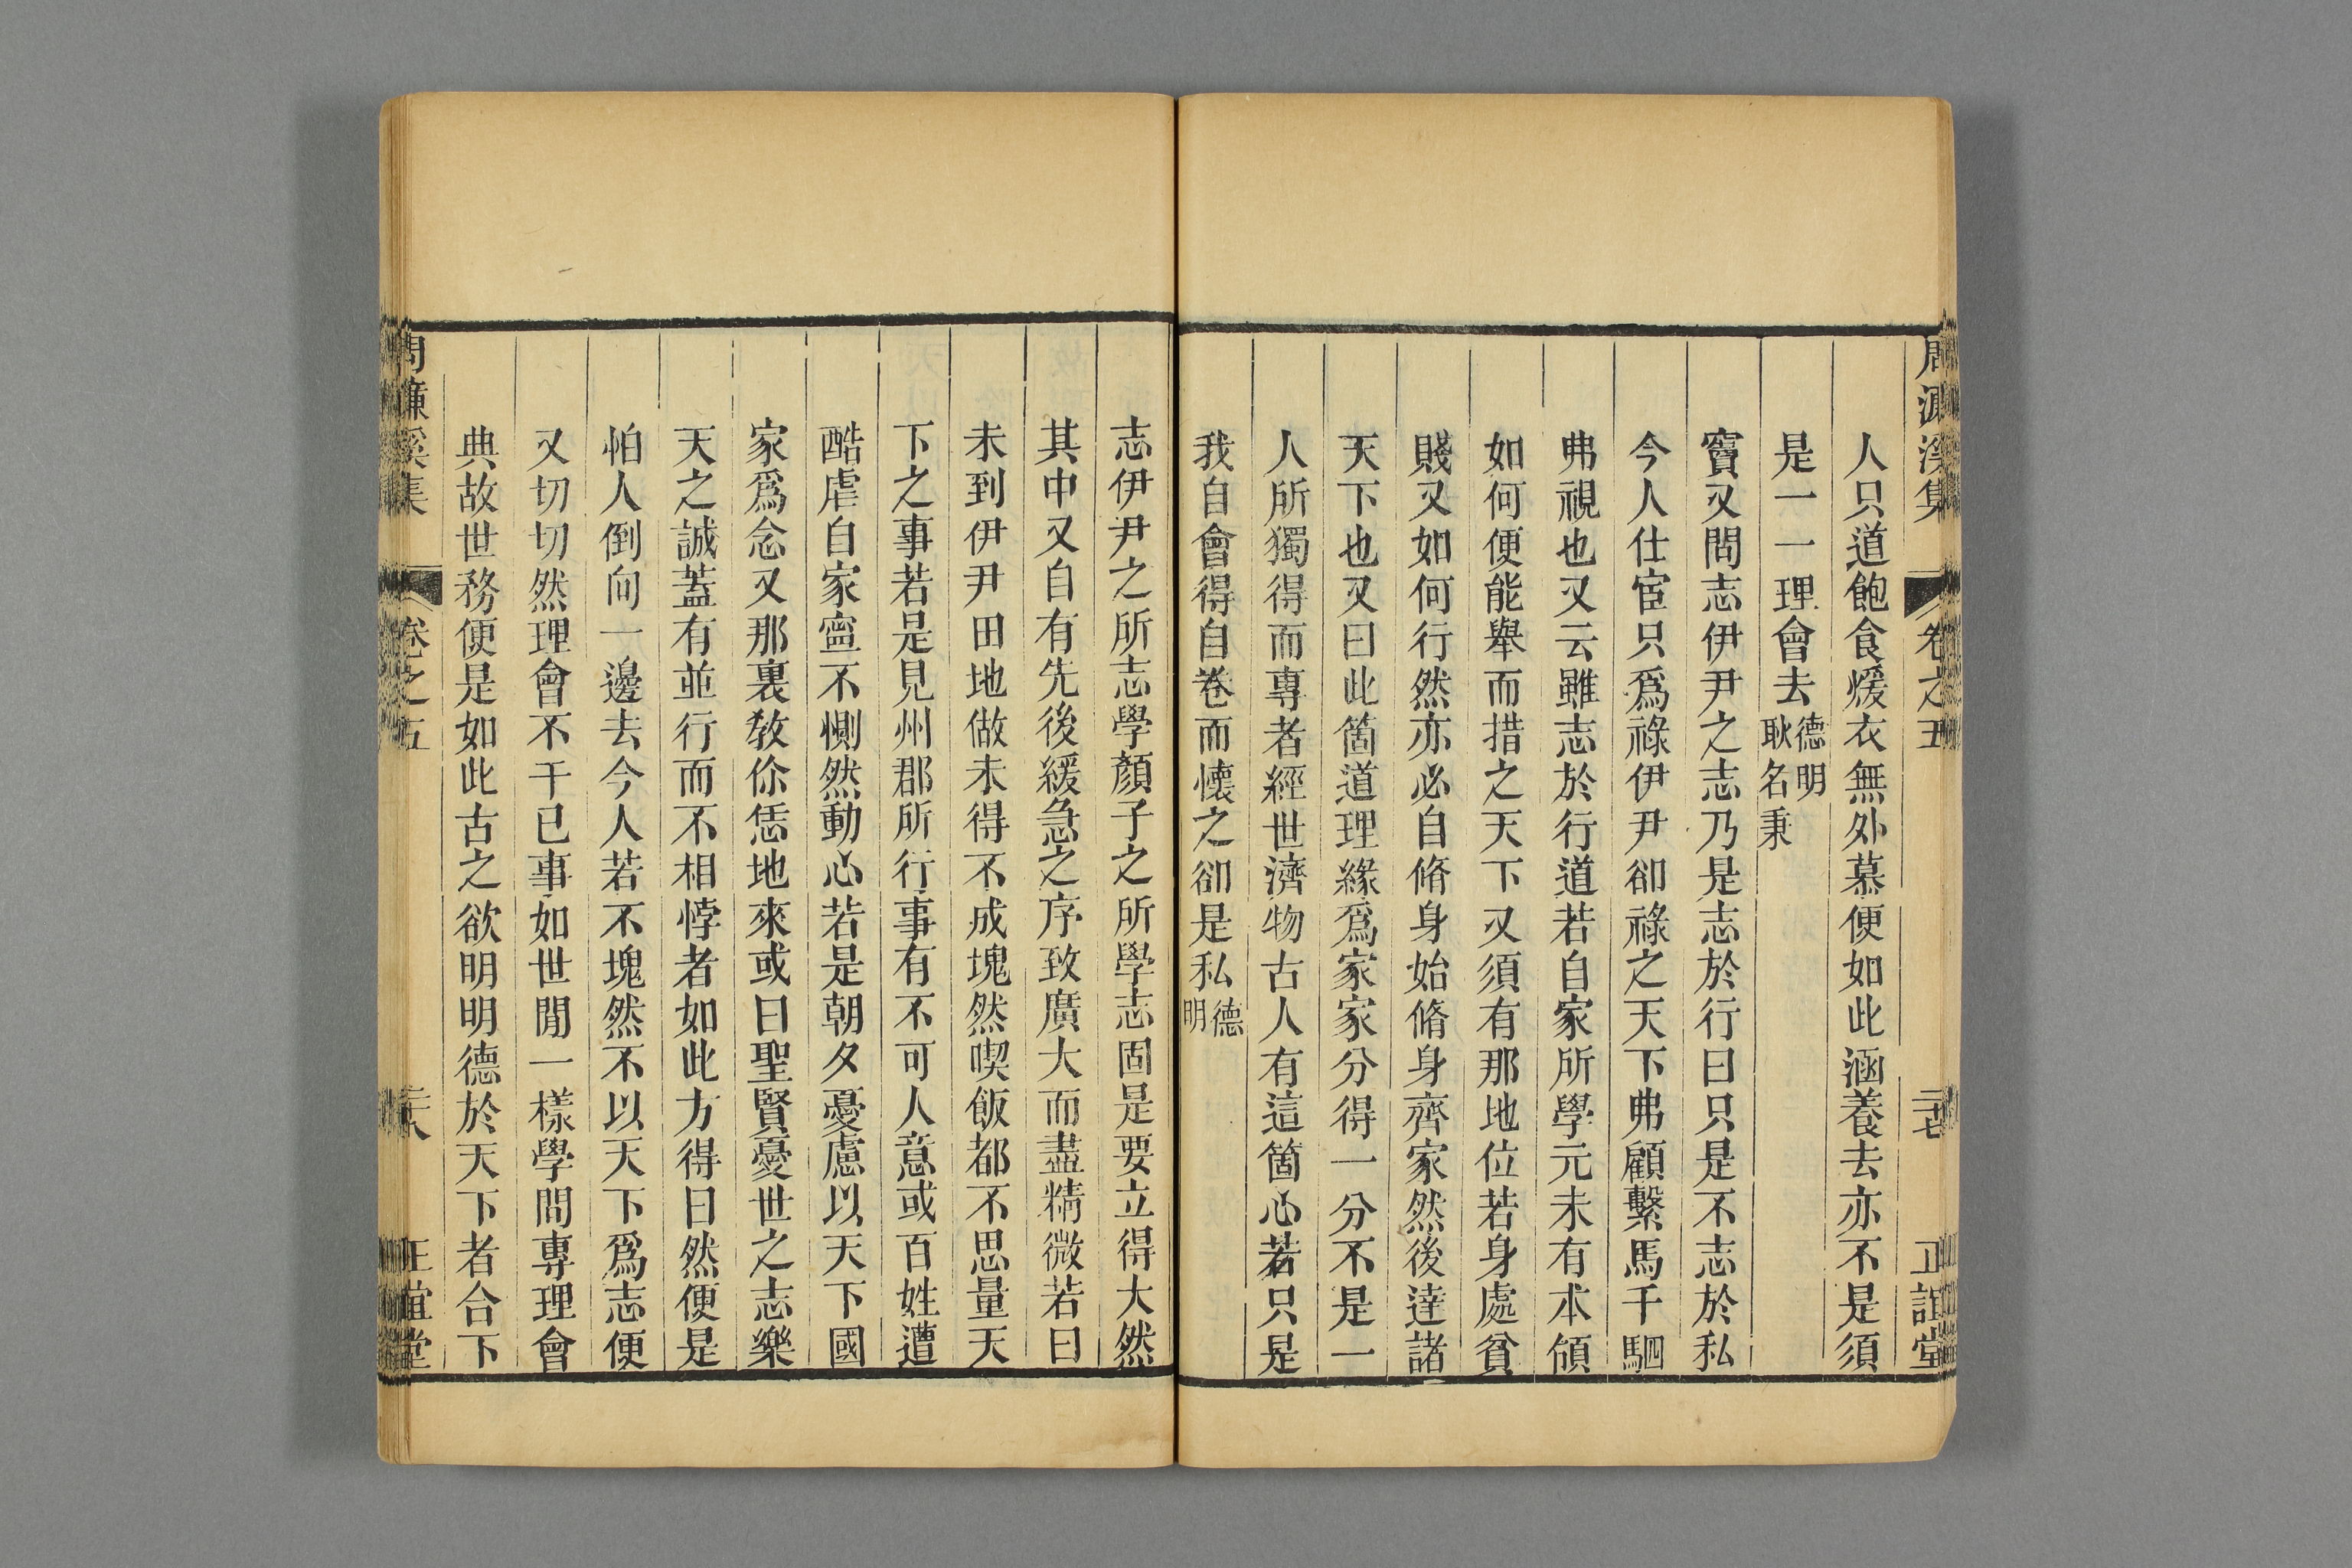 周濂溪集 卷之五 二十七 正誼堂
人只道飽食煖衣無外慕便如此涵養去亦不是須
是一一理會去德明耿名秉
竇又問志伊尹之志乃是志於行曰只是不志於私
今人仕宦只爲祿伊尹卻祿之天下弗顧繫馬千駟
弗視也又云雖志於行道若自家所學元未有本領
如何便能舉而措之天下又須有那地位若身處貧
賤又如何行然亦必自脩身始脩身齊家然後達諸
天下也又曰此箇道理緣爲家家分得一分不是一
人所獨得而專者經世濟物古人有這箇心若只是
我自會得自卷而懷之卻是私德明
志伊尹之所志學顏子之所學志固是要立得大然
其中又自有先後緩急之序致廣大而盡精微若曰
未到伊尹田地做未得不成塊然喫飯都不思量天
下之事若是見州郡所行事有不可人意或百姓遭
酷虐自家寍不惻然動心若是朝夕憂慮以天下國
家爲念又那裏教你恁地來或曰聖賢憂世之志樂
天之誠蓋有並行而不相悖者如此方得曰然便是
怕人倒向一邊去今人若不塊然不以天下爲志便
又切切然理會不干已事如世閒一樣學問專理會
典故世務便是如此古之欲明明德於天下者合下
周濂溪集 卷之五 二十八 正誼堂